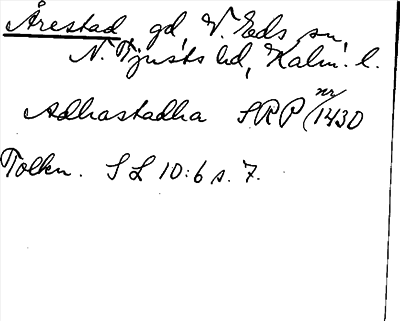 Årestad, gd, V. Eds sn,
N. Tjusts hd, Kalm. l.
Adhastadha SRP nr 1430
Tolkn. SL 10:6 s. 7.